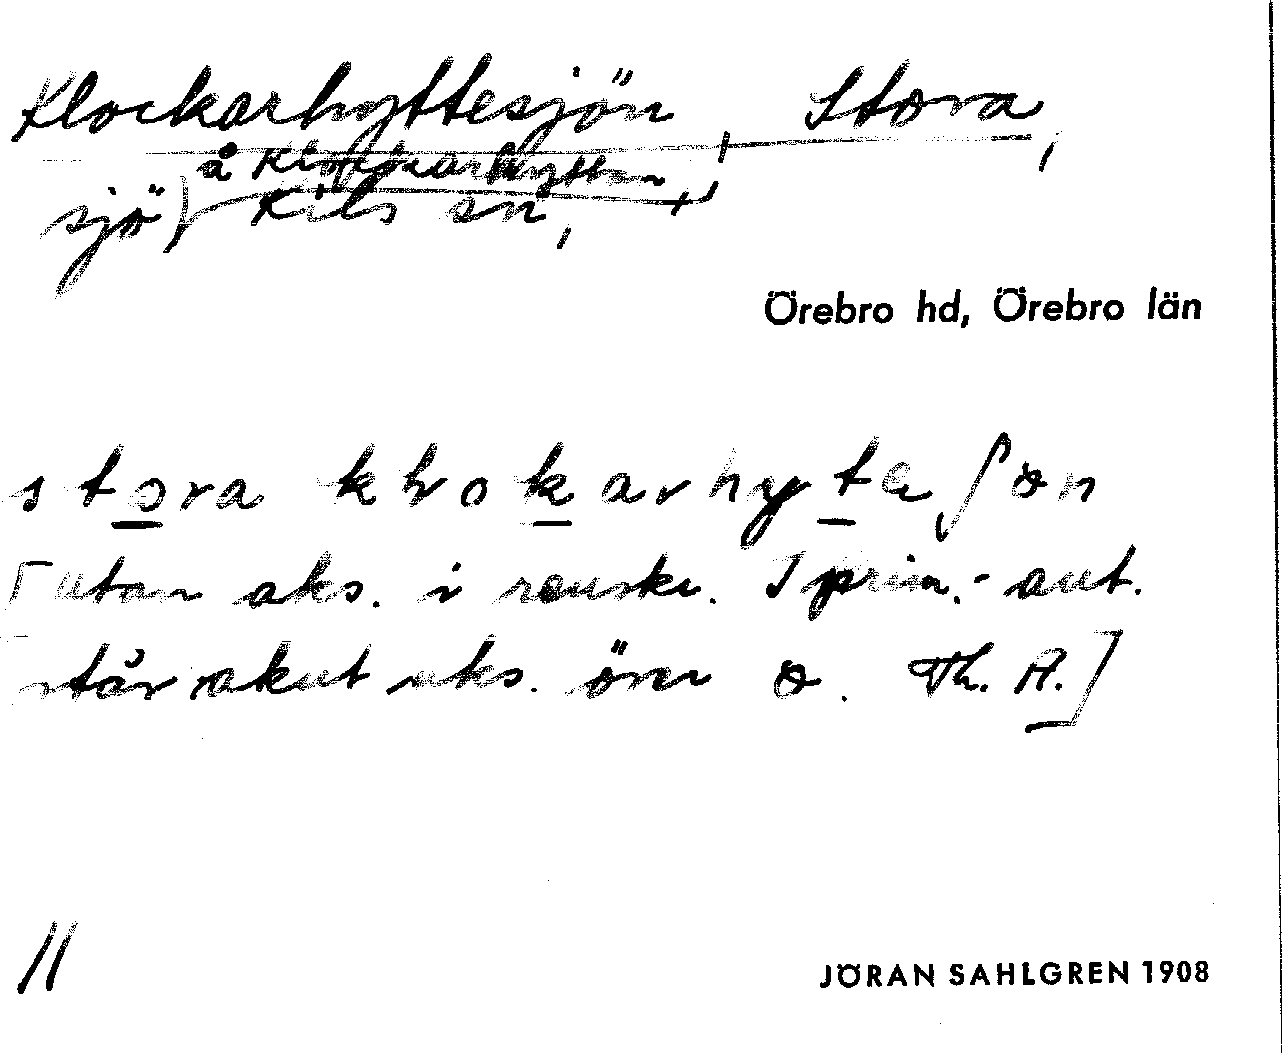 Klockarhyttesjön, Stora,
å Klockarhyttan,
sjö, Kils sn,
Örebro hd, Örebro län
stora klokarhyta ʃön
[utan aks. i renskr. I prim.-ant.
står akut aks. över ö. Th. A.]
11
JÖRAN SAHLGREN 1908